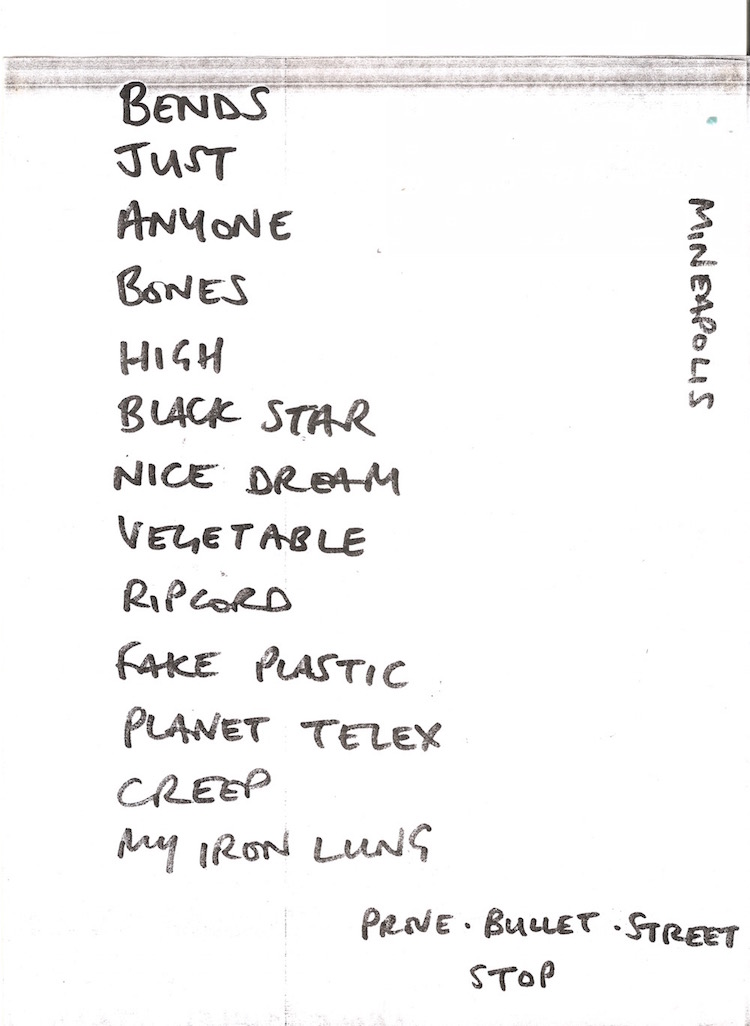 BENDS
JUST
ANYONE
BONES
HIGH
BLACK STAR
NICE DREAM
VEGETABLE
RIPCORD
FAKE PLASTIC
PLANET TELEX
CREEP
MY IRON LUNG
PROVE · BULLET · STREET
STOP
MINEAPOLIS